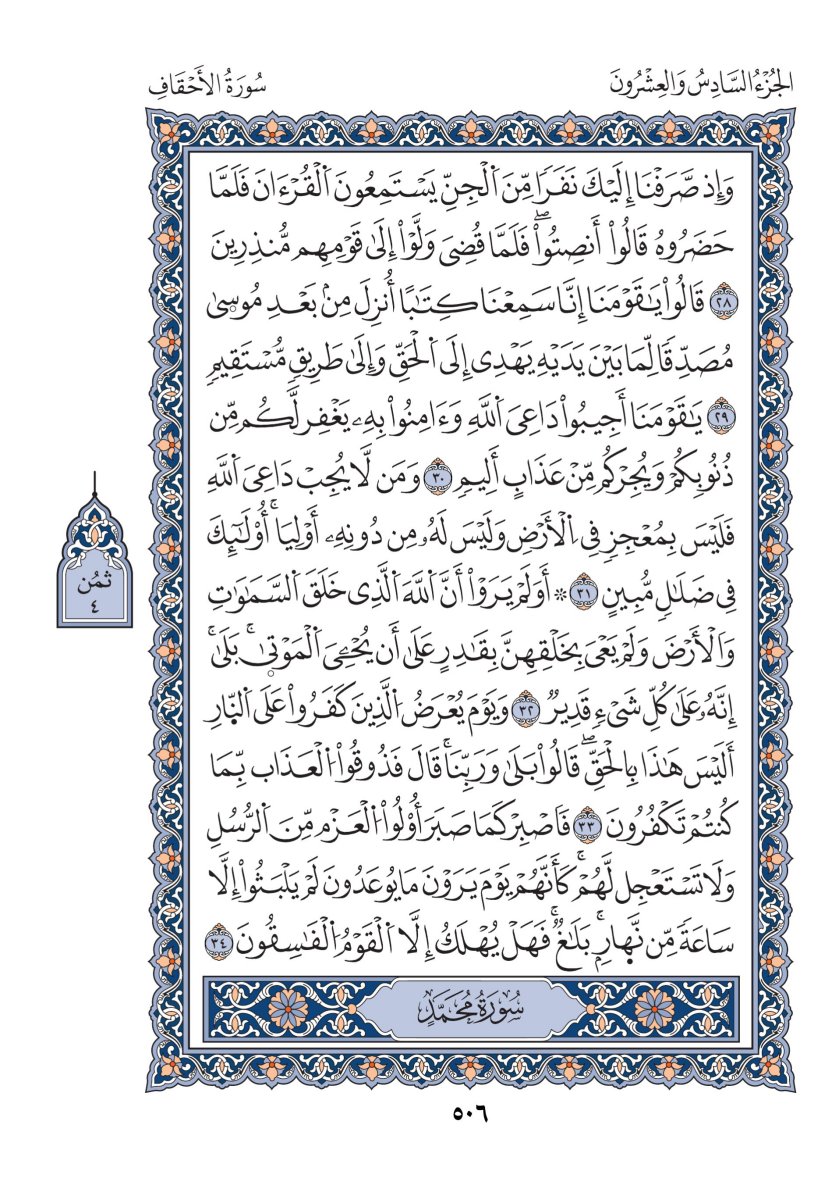 الجُزْءُ السَّادِسُ وَالعِشْرُونَ
سُورَةُ الأَحْقَافِ
وَإِذ صَّرَفْنَا إِلَيْكَ نَفَرٗا مِّنَ اَ۬لْجِنِّ يَسْتَمِعُونَ اَ۬لْقُرْءَانَ فَلَمَّا
حَضَرُوهُ قَالُوٓاْ أَنصِتُواْۖ فَلَمَّا قُضِيَ وَلَّوْاْ إِلَىٰ قَوْمِهِم مُّنذِرِينَ
٢٨ قَالُواْ يَٰقَوْمَنَا إِنَّا سَمِعْنَا كِتَٰبًا أُنزِلَ مِنۢ بَعْدِ مُوسۭيٰ
مُصَدِّقٗا لِّمَا بَيْنَ يَدَيْهِ يَهْدِي إِلَى اَ۬لْحَقِّ وَإِلَىٰ طَرِيقٖ مُّسْتَقِيمٖ
٢٩ يَٰقَوْمَنَا أَجِيبُواْ دَاعِيَ اَ۬للَّهِ وَءَامِنُواْ بِهِۦ يَغْفِر لَّكُم مِّن
ذُنُوبِكُمْ وَيُجِرْكُم مِّنْ عَذَابٍ أَلِيمٖ ٣٠ وَمَن لَّا يُجِبْ دَاعِيَ اَ۬للَّهِ
فَلَيْسَ بِمُعْجِزٖ فِي اِ۬لْأَرْضِ وَلَيْسَ لَهُۥ مِن دُونِهِۦ أَوْلِيَاۚ أُوْلَٰٓئِكَ
فِي ضَلَٰلٖ مُّبِينٍ ٣١ ۞ أَوَلَمْ يَرَوْاْ أَنَّ اَ۬للَّهَ اَ۬لَّذِي خَلَقَ اَ۬لسَّمَٰوَٰتِ
وَالْأَرْضَ وَلَمْ يَعْيَ بِخَلْقِهِنَّ بِقَٰدِرٍ عَلَىٰ أَن يُحْـِۧيَ اَ۬لْمَوْتۭيٰۚ بَلَىٰٓۚ
إِنَّهُۥ عَلَىٰ كُلِّ شَيْءٖ قَدِيرٞ ٣٢ وَيَوْمَ يُعْرَضُ اُ۬لَّذِينَ كَفَرُواْ عَلَى اَ۬لنّ۪ارِ
أَلَيْسَ هَٰذَا بِالْحَقِّۖ قَالُواْ بَلَىٰ وَرَبِّنَاۚ قَالَ فَذُوقُواْ اُ۬لْعَذَابَ بِمَا
كُنتُمْ تَكْفُرُونَ ٣٣ فَاصْبِرْ كَمَا صَبَرَ أُوْلُواْ اُ۬لْعَزْمِ مِنَ اَ۬لرُّسُلِ
وَلَا تَسْتَعْجِل لَّهُمْۚ كَأَنَّهُمْ يَوْمَ يَرَوْنَ مَا يُوعَدُونَ لَمْ يَلْبَثُواْ إِلَّا
سَاعَةٗ مِّن نَّه۪ارِۢۚ بَلَٰغٞۚ فَهَلْ يُهْلَكُ إِلَّا اَ۬لْقَوْمُ اُ۬لْفَٰسِقُونَ ٣٤
ثُمُن
٤
سُورَةُ مُحَمَّدٍ
٥٠٦